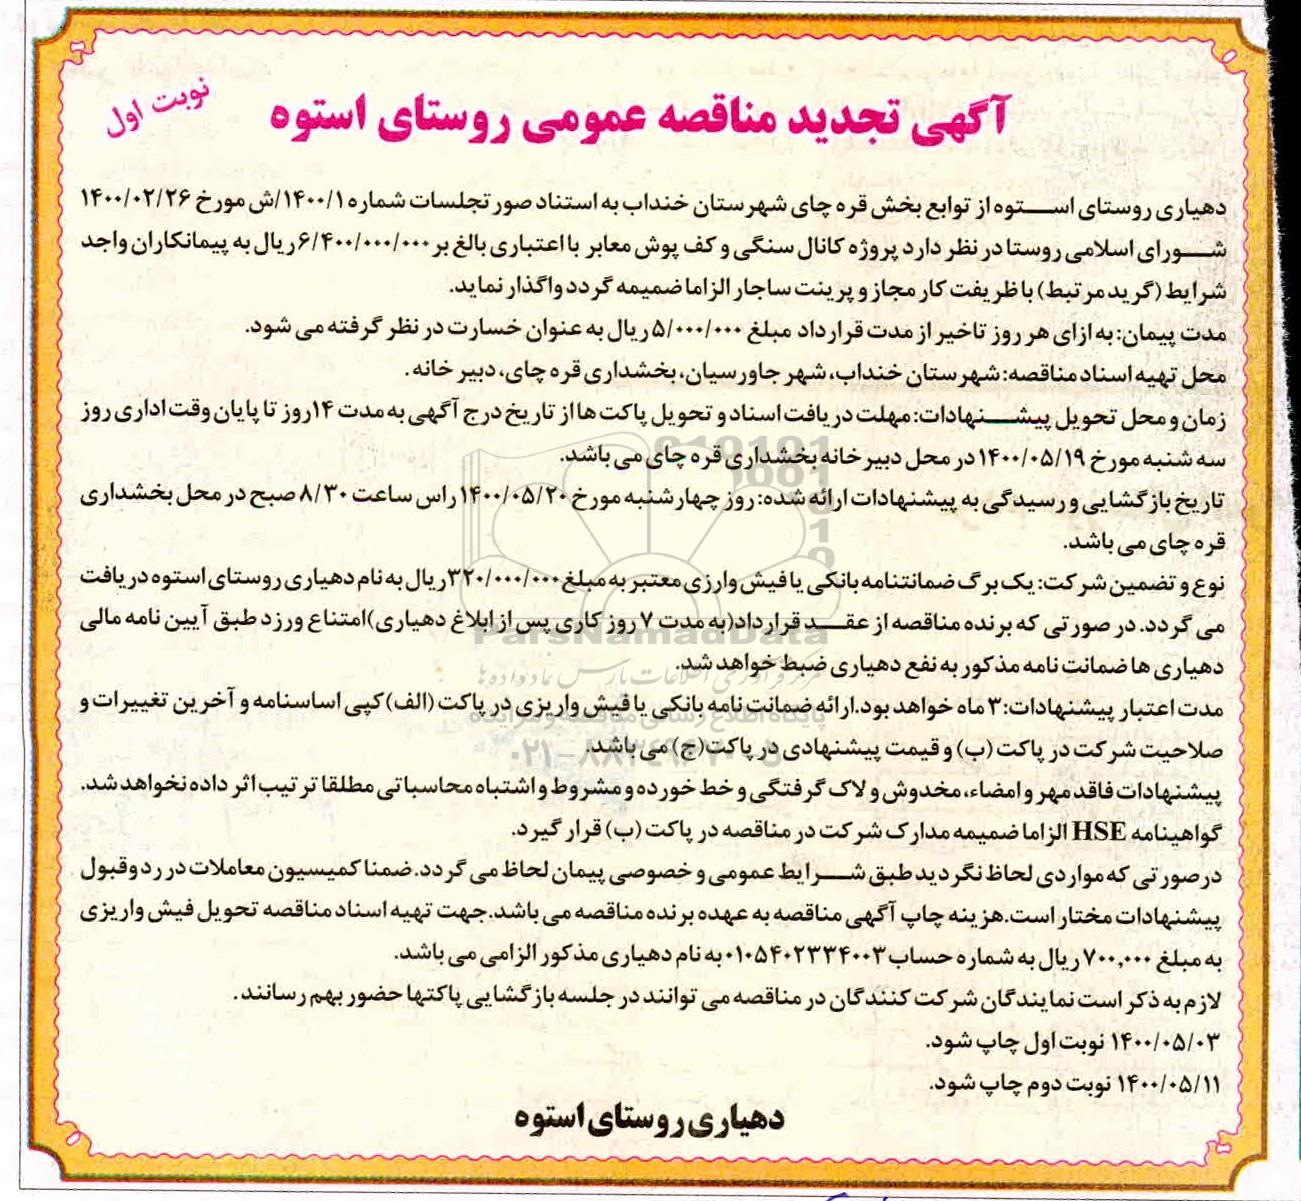 آگهی تجدید مناقصه عمومی روستای استوه
نوبت اول
دهیاری روستای استوه از توابع بخش قره چای شهرستان خنداب به استناد صورتجلسات شماره ۱۴۰۰/۱/ش مورخ ۱۴۰۰/۰۲/۲۶
شورای اسلامی روستا در نظر دارد پروژه کانال سنگی و کف پوش معابر با اعتباری بالغ بر ۶/۴۰۰/۰۰۰/۰۰۰ ریال به پیمانکاران واجد
شرایط (گرید مرتبط) با ظریفت کار مجاز و پرینت ساجار الزاما ضمیمه گردد واگذار نماید.
مدت پیمان: به ازای هر روز تاخیر از مدت قرارداد مبلغ ۵/۰۰۰/۰۰۰ ریال به عنوان خسارت در نظر گرفته می شود.
محل تهیه اسناد مناقصه: شهرستان خنداب، شهر جاورسیان، بخشداری قره چای، دبیر خانه.
زمان و محل تحویل پیشنهادات: مهلت دریافت اسناد و تحویل پاکت ها از تاریخ درج آگهی به مدت ۱۴ روز تا پایان وقت اداری روز
سه شنبه مورخ ۱۴۰۰/۰۵/۱۹ در محل دبیرخانه بخشداری قره چای می باشد.
تاریخ بازگشایی و رسیدگی به پیشنهادات ارائه شده: روز چهارشنبه مورخ ۱۴۰۰/۰۵/۲۰ راس ساعت ۸/۳۰ صبح در محل بخشداری
قره چای می باشد.
نوع و تضمین شرکت: یک برگ ضمانتنامه بانکی یا فیش وارزی معتبر به مبلغ ۳۲۰/۰۰۰/۰۰۰ ریال به نام دهیاری روستای استوه دریافت
می گردد. در صورتی که برنده مناقصه از عقد قرارداد(به مدت ۷ روز کاری پس از ابلاغ دهیاری)امتناع ورزد طبق آیین نامه مالی
دهیاری ها ضمانت نامه مذکور به نفع دهیاری ضبط خواهد شد.
مدت اعتبار پیشنهادات: ۳ ماه خواهد بود.ارائه ضمانت نامه بانکی یا فیش واریزی در پاکت (الف) کپی اساسنامه و آخرین تغییرات و
صلاحیت شرکت در پاکت (ب) و قیمت پیشنهادی در پاکت(ج) می باشد.
پیشنهادات فاقد مهر و امضاء، مخدوش و لاک گرفتگی و خط خورده و مشروط و اشتباه محاسباتی مطلقا ترتیب اثر داده نخواهد شد.
گواهینامه HSE الزاما ضمیمه مدارک شرکت در مناقصه در پاکت (ب) قرار گیرد.
درصورتی که مواردی لحاظ نگردید طبق شرایط عمومی و خصوصی پیمان لحاظ می گردد. ضمنا کمیسیون معاملات در رد وقبول
پیشنهادات مختار است. هزینه چاپ آگهی مناقصه به عهده برنده مناقصه می باشد. جهت تهیه اسناد مناقصه تحویل فیش واریزی
به مبلغ ۷۰۰,۰۰۰ ریال به شماره حساب ۰۱۰۵۴۰۲۳۳۴۰۰۳ به نام دهیاری مذکور الزامی می باشد.
لازم به ذکر است نمایندگان شرکت کنندگان در مناقصه می توانند در جلسه بازگشایی پاکتها حضور بهم رسانند.
۱۴۰۰/۰۵/۰۳ نوبت اول چاپ شود.
۱۴۰۰/۰۵/۱۱ نوبت دوم چاپ شود.
دهیاری روستای استوه
ParsNamadData